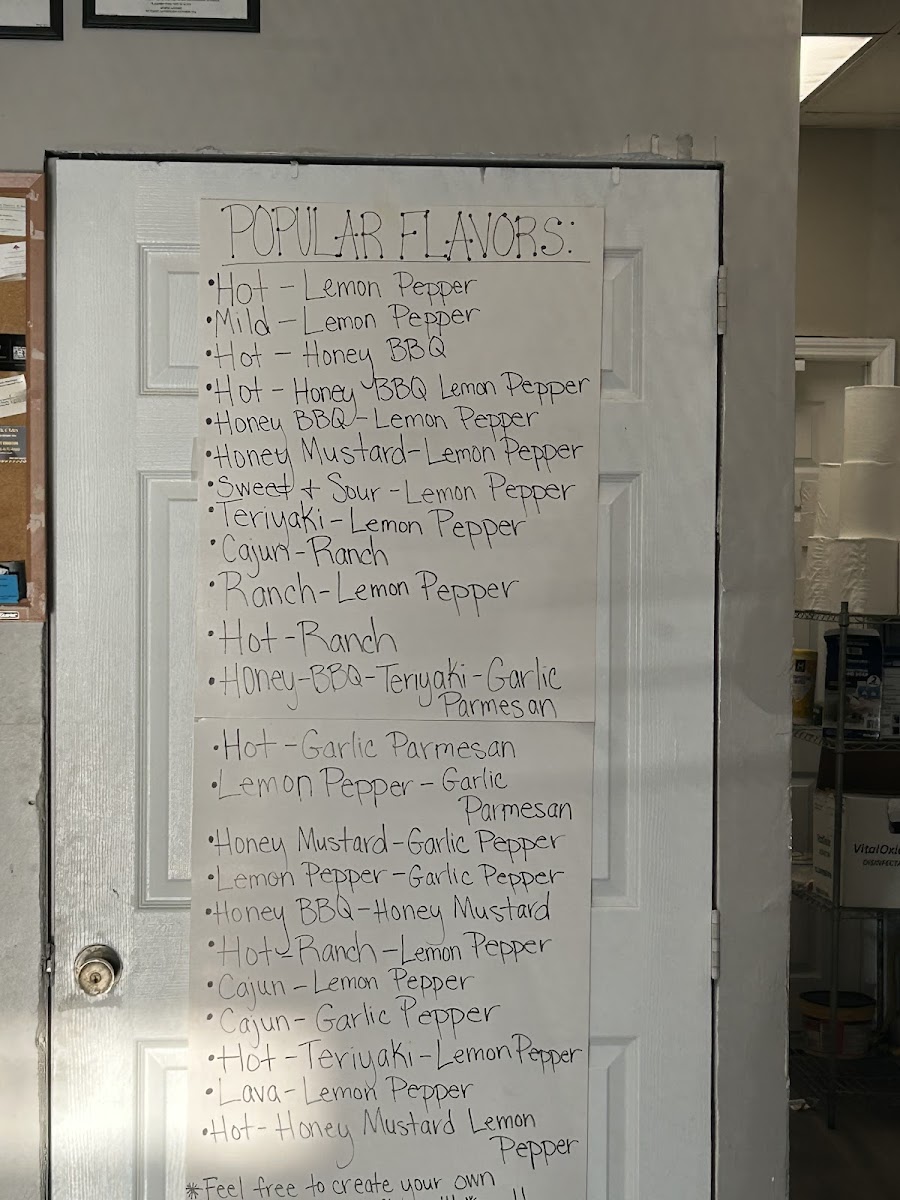 POPULAR FLAVORS:
•Hot - Lemon Pepper
•Mild - Lemon Pepper
•Hot - Honey BBQ
•Hot - Honey BBQ Lemon Pepper
•Honey BBQ - Lemon Pepper
•Honey Mustard - Lemon Pepper
•Sweet + Sour - Lemon Pepper
•Teriyaki - Lemon Pepper
•Cajun - Ranch
•Ranch - Lemon Pepper
•Hot - Ranch
•Honey - BBQ - Teriyaki - Garlic
Parmesan
•Hot - Garlic Parmesan
•Lemon Pepper - Garlic
Parmesan
•Honey Mustard - Garlic Pepper
•Lemon Pepper - Garlic Pepper
•Honey BBQ - Honey Mustard
•Hot - Ranch - Lemon Pepper
•Cajun - Lemon Pepper
•Cajun - Garlic Pepper
•Hot - Teriyaki - Lemon Pepper
•Lava - Lemon Pepper
•Hot - Honey Mustard Lemon
Pepper
*Feel free to create your own
VitalOxi
DISINFECTA